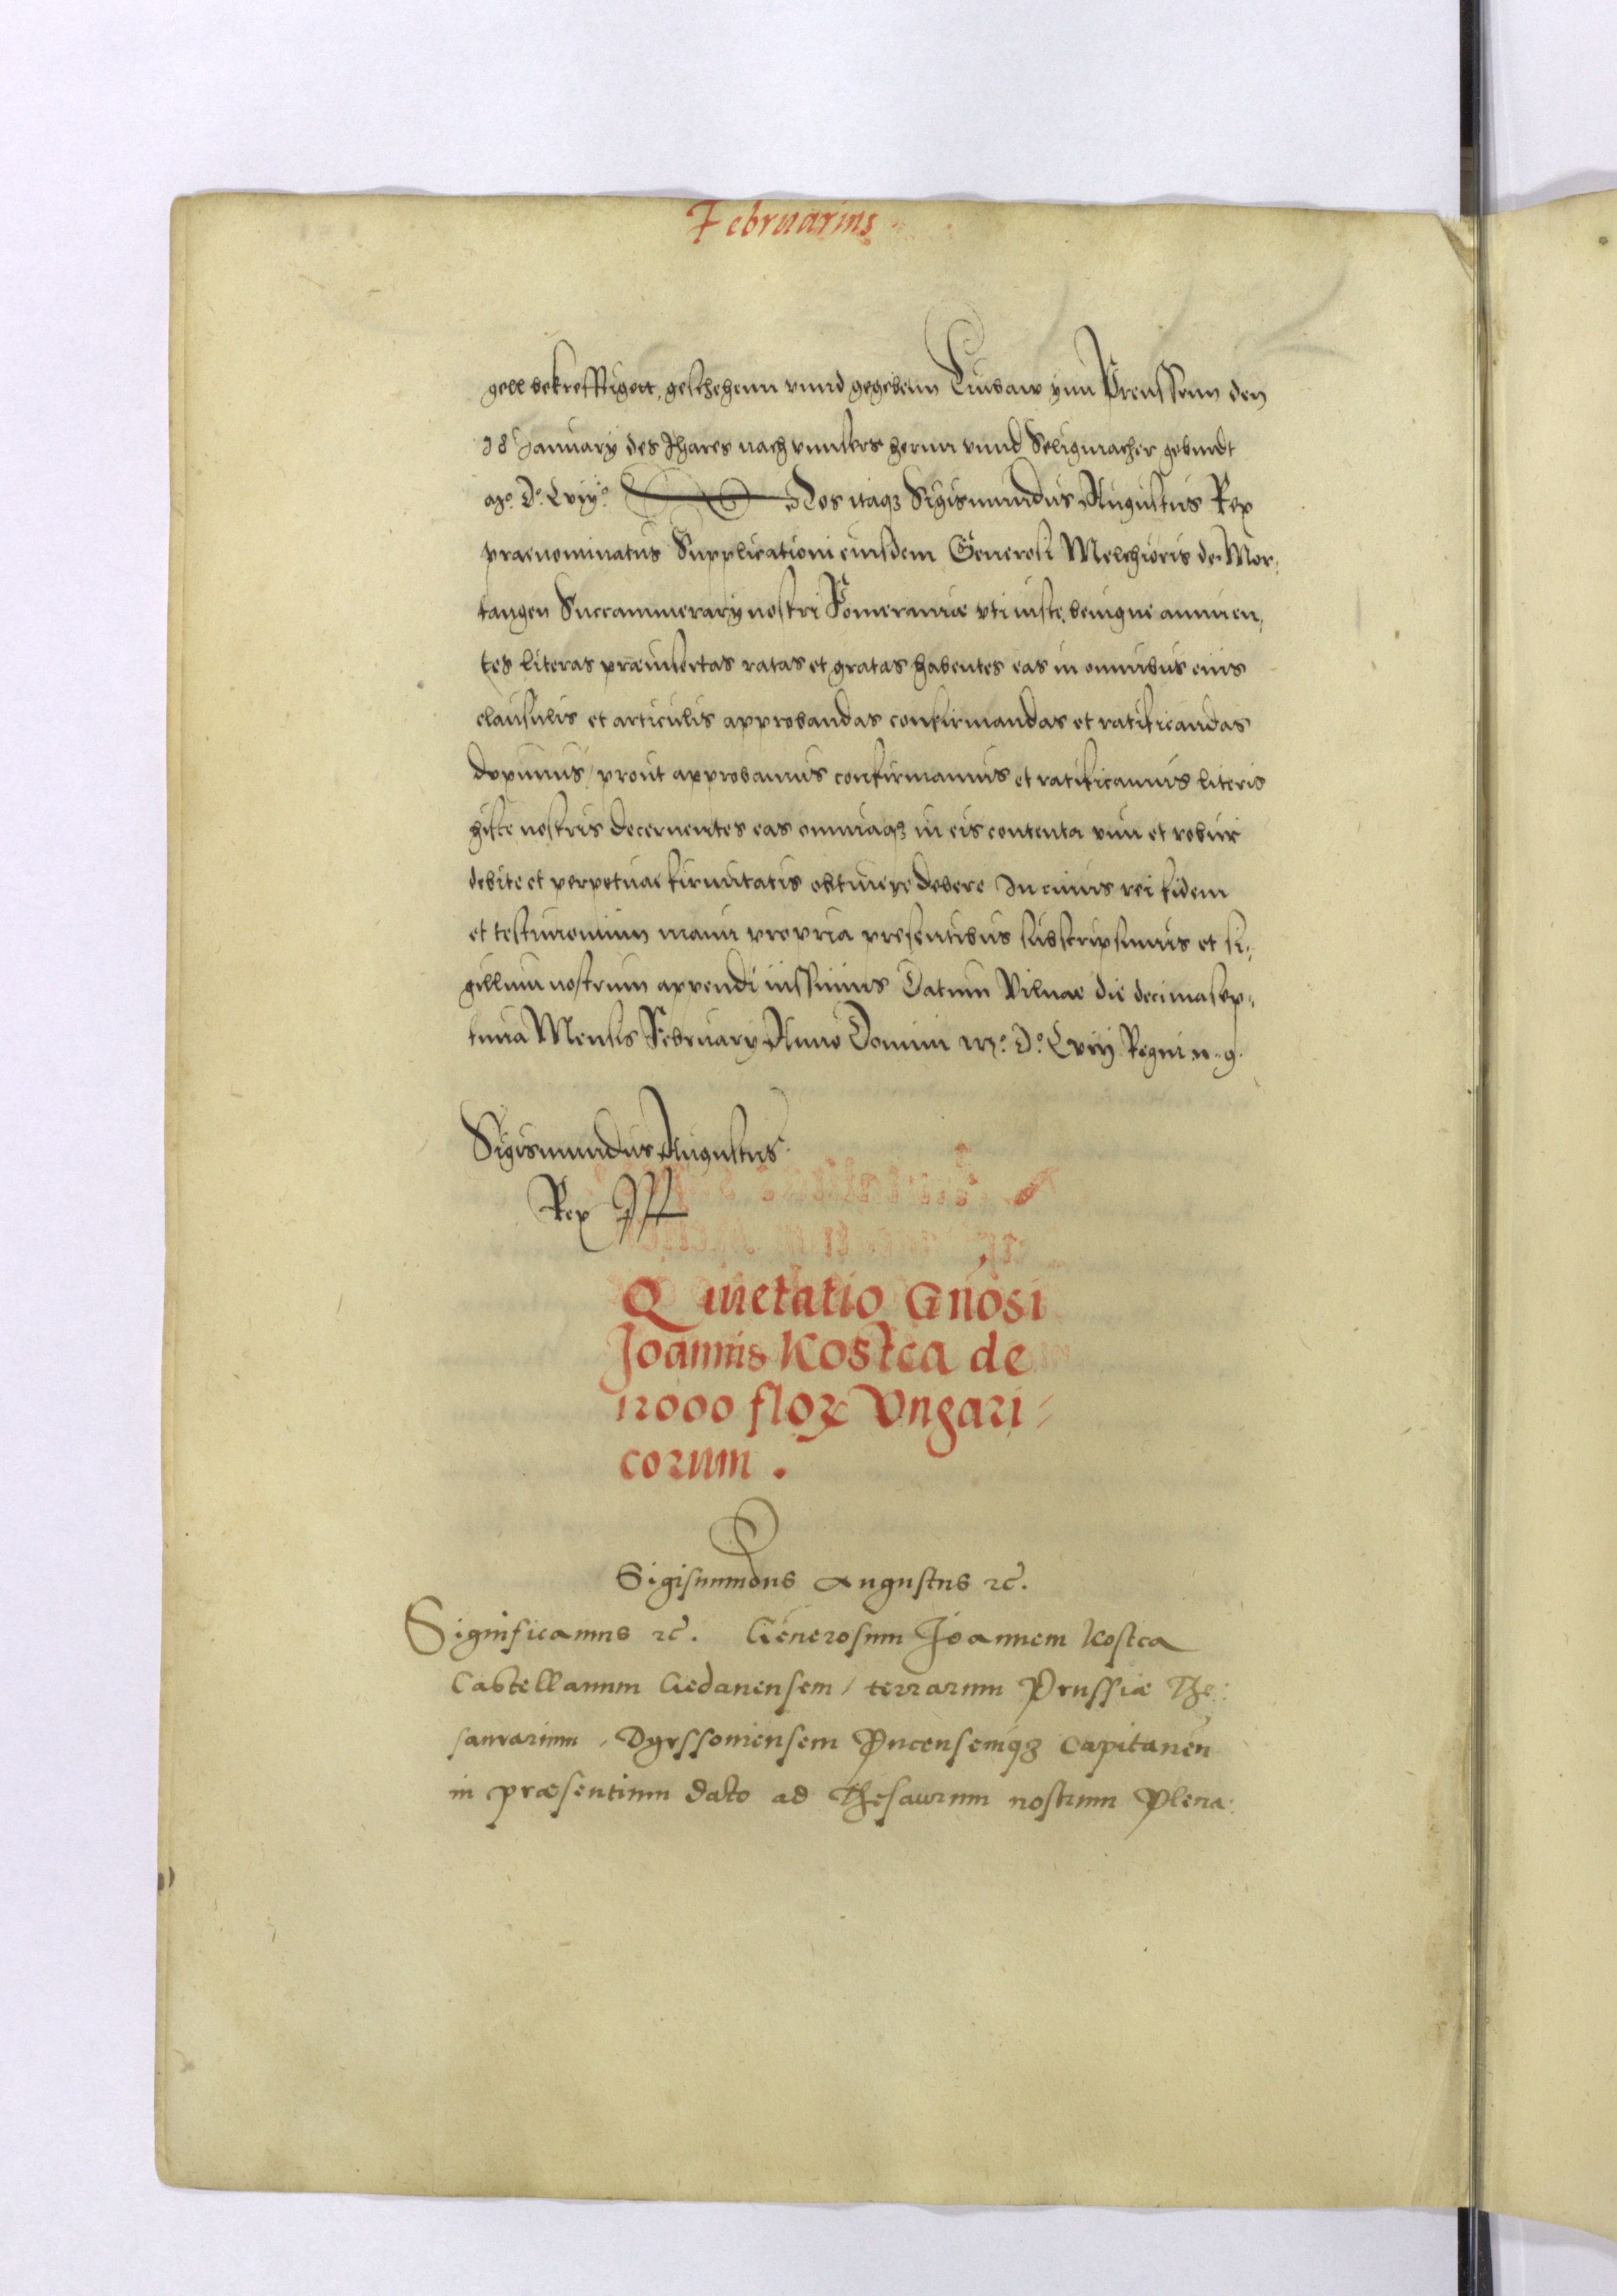 Februarius
gell bekrefftigett, geschehenn vnnd gegebenn Liubaw ynn Preussenn den
18 January des Jhares nach vnnsers herrnn vnnd Seligmacher geburdt
Mo. Do. Lviijo. Nos itaqз Sigismundus Augustus Rex
praenominatus Supplicationi eiusdem Generosi Melchioris de Mor,
tangen Succammerarij nostri Pomeraniæ vti iuste, benigne annuen,
tes literas præinsertas ratas et gratas habentes eas in omnibus eius
clausulis et articulis approbandas confirmandas et ratificandas
duximus / prout approbamus confirmamus et ratificamus literis
hisce nostris decernentes eas omniaqз in eis contenta vim et robur
debite et perpetuae firmitatis obtinere debere In cuius rei fidem
et testimonium manu propria presentibus subscripsimus et si,
gillum nostrum appendi iussimus Datum Vilnae die decimasep,
tima Mensis February Anno Domini Mo. Do. Lviij Regni n. 9.
Sigismundus Augustus
Rex
Quietatio Gnosi
Joannis Kostca de
12000 floꝝ Vngari=
corum.
Sigismundus Augustus ꝛc̃.
Significamus ꝛc̃. Generosum Joannem Kostca
Castellanum Gedanensem / terrarum Prussiæ The:
saurarium, Dyrssouiensem Pucensemqз Capitaneũ
in præsentium dato ad Thesaurum nostrum Plena: